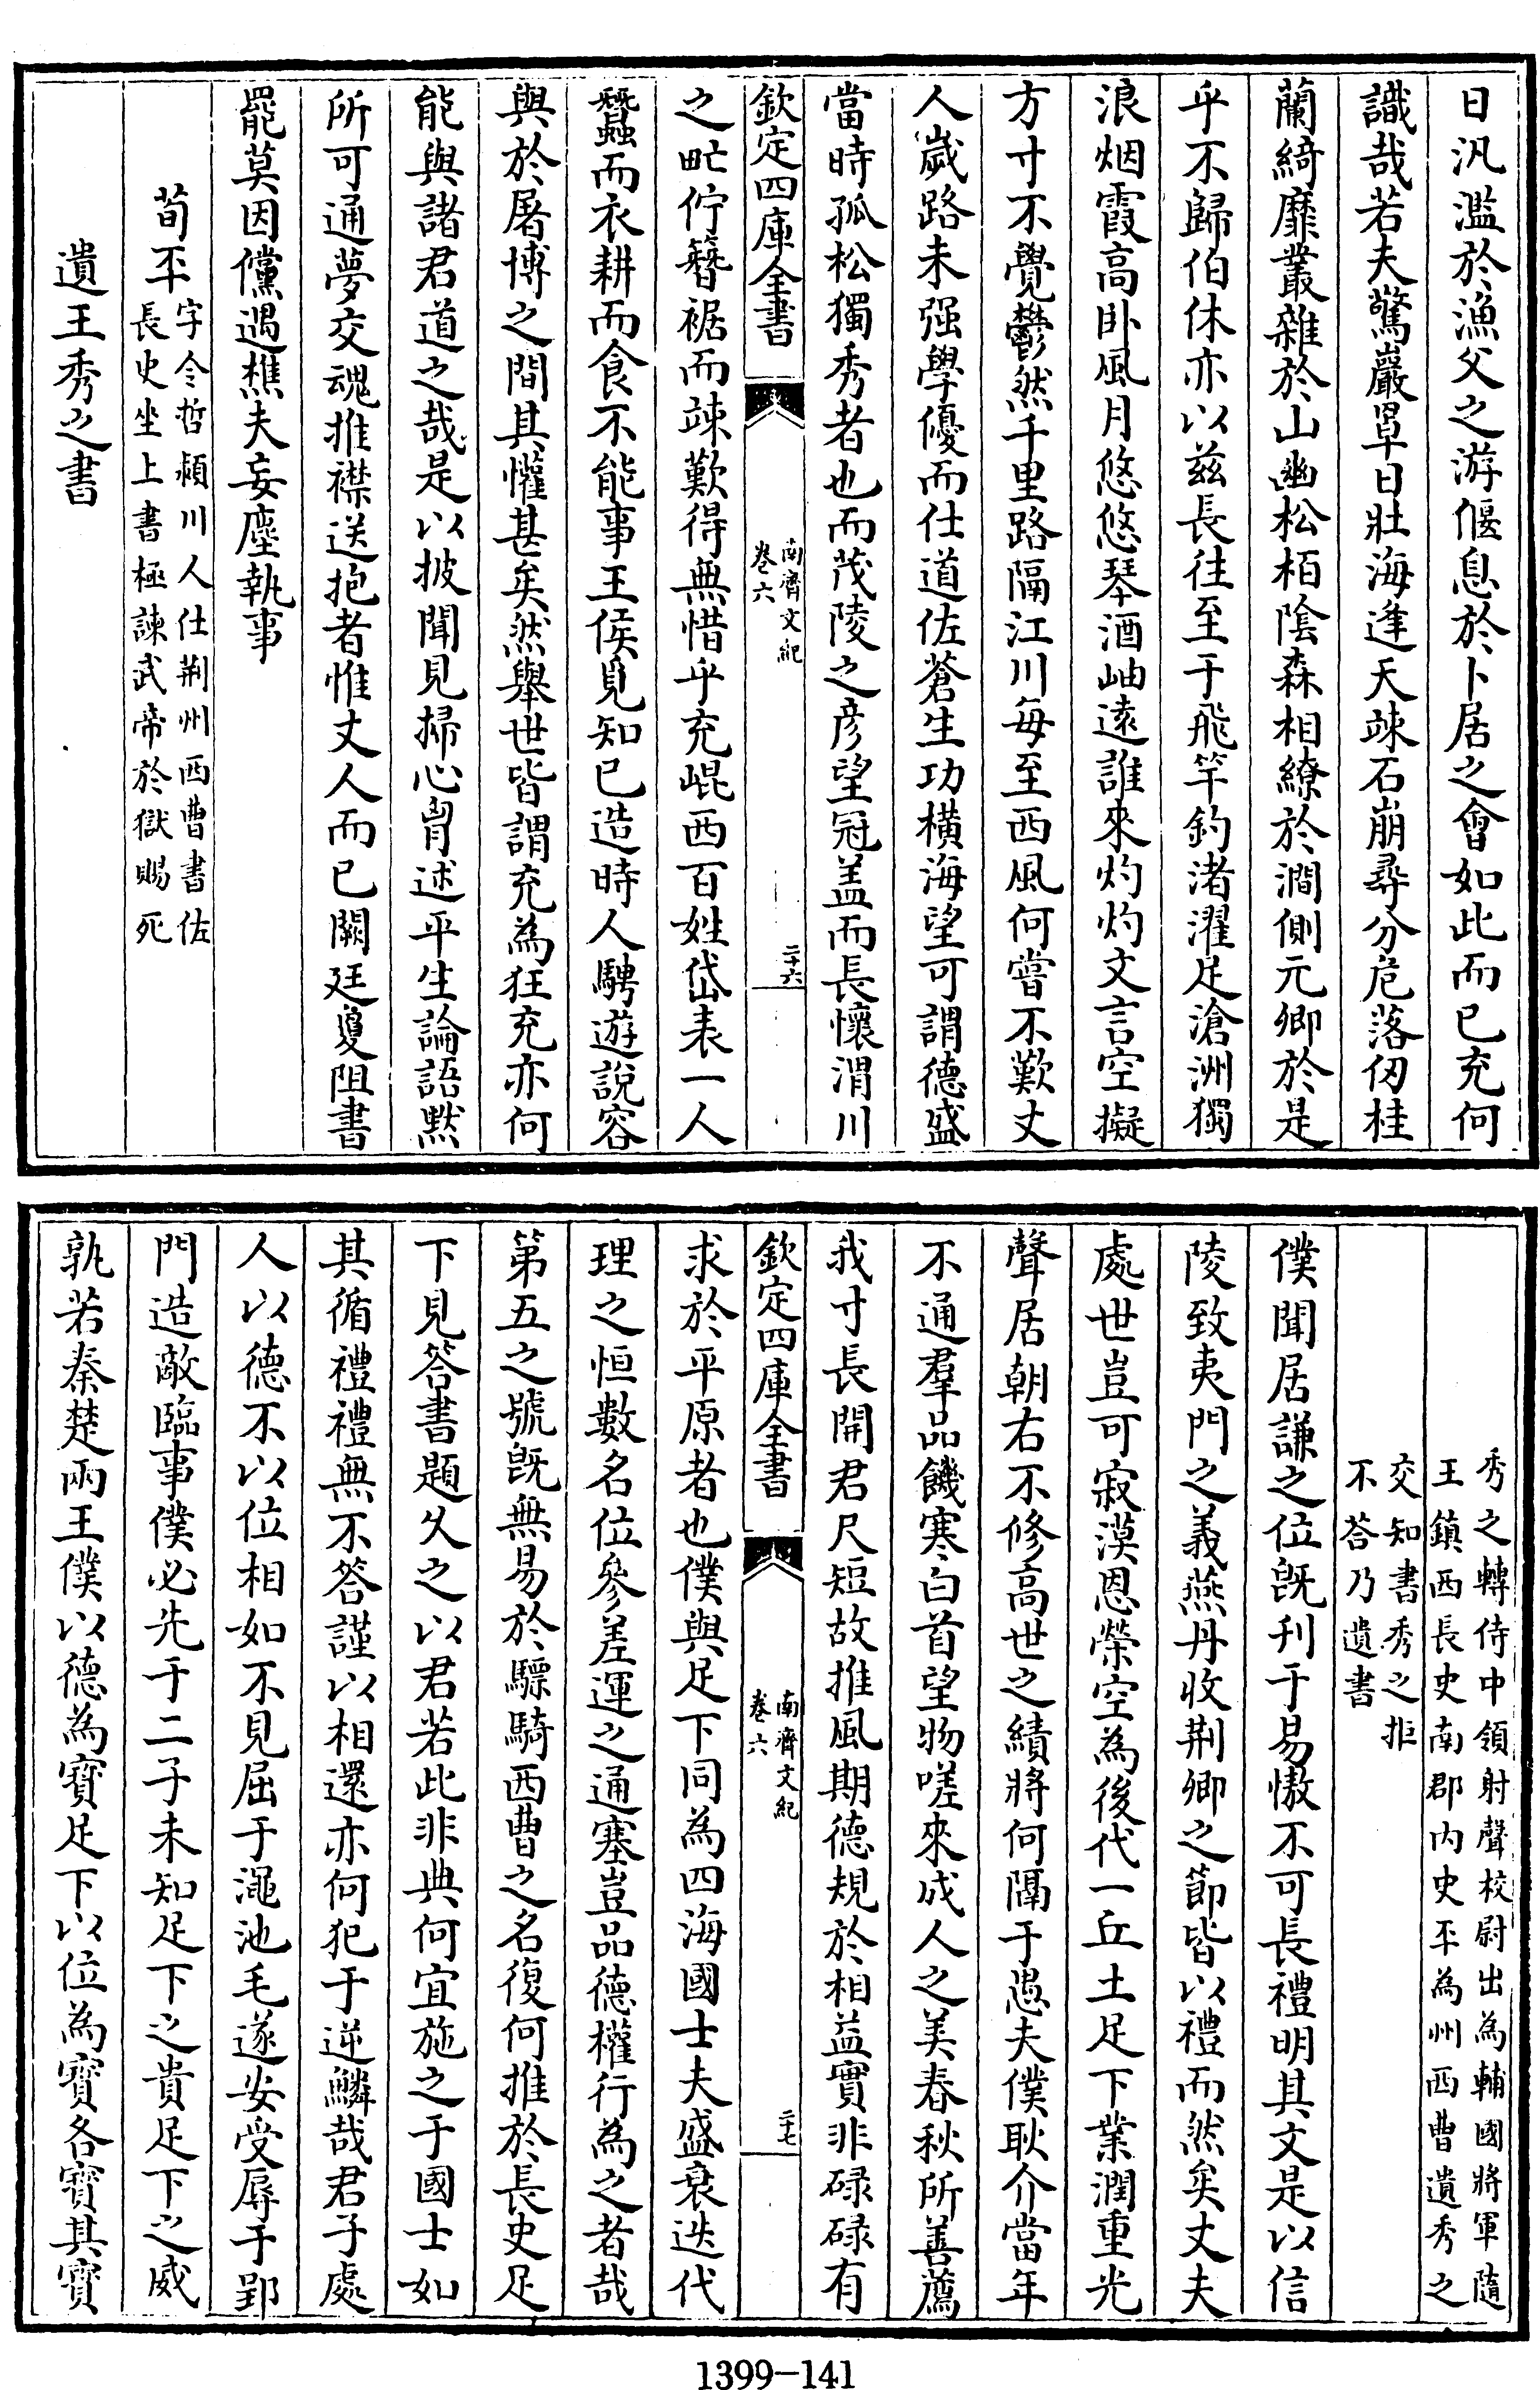 日汎濫於漁父之游偃息於卜居之會如此而已充何
識哉若夫驚巖罩日壯海逢天竦石崩尋分危落仞桂
蘭綺靡叢雜於山幽松栢陰森相繚於澗側元卿於是
乎不歸伯休亦以兹長往至于飛竿釣渚濯足滄洲獨
浪烟霞高卧風月悠悠琴酒岫遠誰來灼灼文言空擬
方寸不覺鬱然千里路隔江川每至西風何嘗不歎丈
人歲路未强學優而仕道佐蒼生功橫海望可謂德盛
當時孤松獨秀者也而茂陵之彦望冠盖而長懷渭川
欽定四庫全書
南齊文紀
卷六
二十六
之甿佇簪裾而竦歎得無惜乎充崐西百姓岱表一人
蠶而衣耕而食不能事王侯覓知已造時人騁遊說容
與於屠博之間其懽甚矣然舉世皆謂充為狂充亦何
能與諸君道之哉是以披聞見掃心胷述平生論語默
所可通夢交魂推襟送抱者惟丈人而已闕廷夐阻書
罷莫因儻遇樵夫妄塵執事
荀丕
字令哲潁川人仕荆州西曹書佐
長史坐上書極諫武帝於獄賜死
遺王秀之書
秀之轉侍中領射聲校尉出為輔國將軍隨
王鎮西長史南郡内史丕為州西曹遺秀之
交知書秀之拒
不荅乃遺書
僕聞居謙之位旣刋于易慠不可長禮明其文是以信
陵致夷門之義燕丹收荆卿之節皆以禮而然矣丈夫
處世豈可寂漠恩榮空為後代一丘土足下業潤重光
聲居朝右不修高世之績將何隔于愚夫僕耿介當年
不通羣品饑寒白首望物嗟來成人之美春秋所善薦
我寸長開君尺短故推風期德規於相益實非碌碌有
欽定四庫全書
南齊文紀
卷六
二十七
求於平原者也僕與足下同為四海國士夫盛衰迭代
理之恒數名位參差運之通塞豈品德權行為之者哉
第五之號旣無易於驃騎西曹之名復何推於長史足
下見答書題久之以君若此非典何宜施之于國士如
其循禮禮無不答謹以相還亦何犯于逆鱗哉君子處
人以德不以位相如不見屈于澠池毛遂安受辱于郢
門造敵臨事僕必先于二子未知足下之貴足下之威
孰若秦楚兩王僕以德為寶足下以位為寶各寶其寶
1399-141